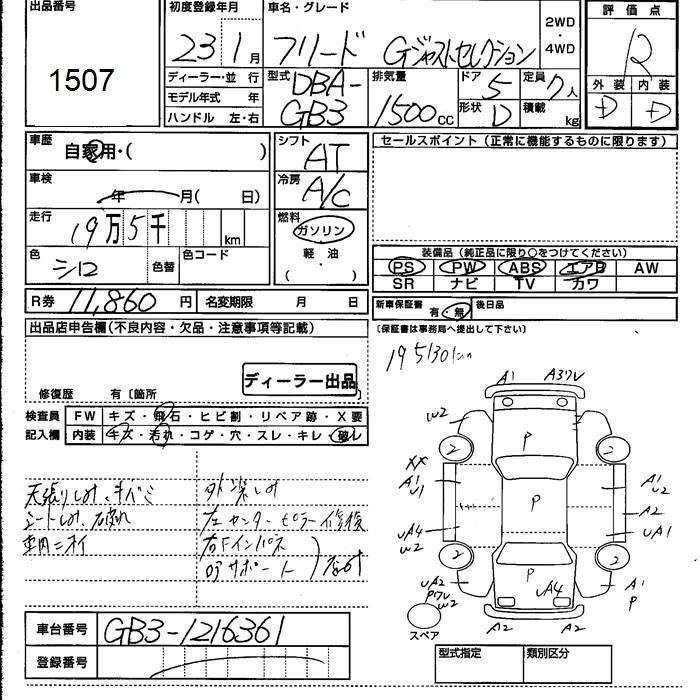 出品番号
1507
初度登録年月
23 1月
車名・グレード
フリード Gジャストセレクション
2WD
・
4WD
評価点
R
外装 内装
D D
ディーラー・並 行
モデル年式 年
ハンドル 左・右
型式 DBA-
GB3
排気量
1500cc
ドア 5
形状 D
定員 7人
積載 kg
車歴
自家用・( )
車検
年 月( 日)
走行
19万5千 km
色
シロ
色替
色コード
シフト
AT
冷房
A/C
燃料
ガソリン
軽・油
( )
セールスポイント(正常に機能するものに限ります)
装備品(純正品に限り○をつけてください)
PS PW ABS エアB AW
SR ナビ TV カワ
R券 11,860 円 名変期限 月 日
新車保証書 有・無 後日品
〔保証書は事務局へ提出して下さい〕
出品店申告欄(不良内容・欠品・注意事項等記載)
ディーラー出品
修復歴 有〔箇所
検査員
記入欄
FW キズ・飛石・ヒビ割・リペア跡・X要
内装 キズ・汚れ・コゲ・穴・スレ・キレ・破レ
天張りしみ、キバミ
シートしみ、破れ
車内ニオイ
左センターピラー修復
右Fインパネ
ロアサポート
195130km
A1 A3ワレ
W2
2 2
P
XX
A1
U1
A1
U2
P
A2
UA4
W2
UA1
2 2
P
UA4
UA2
Pワレ
W2
A1
P
スペア
A2 A2
車台番号 GB3-1216361
登録番号
型式指定 類別区分